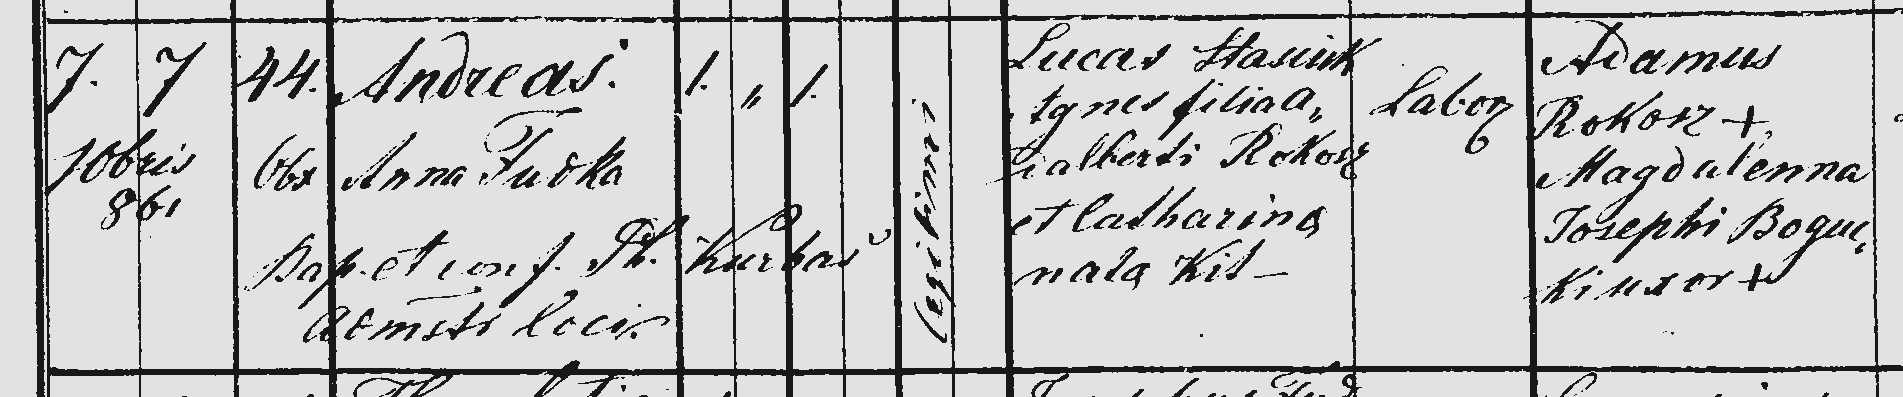 7. 7 44. Andreas. 1. " 1.
10bris Obx Anna Fudka
861
Bap. et conf. Th. Kurbas
Admsti loci.
legitimi
Lucas Stasiuk
Agnes filia a,
Adalberti Rokosz
et Catharina
nata Kit —
Labor
Adamus
Rokosz +
Magdalenna
Josephi Boguc,
Ki uxor +